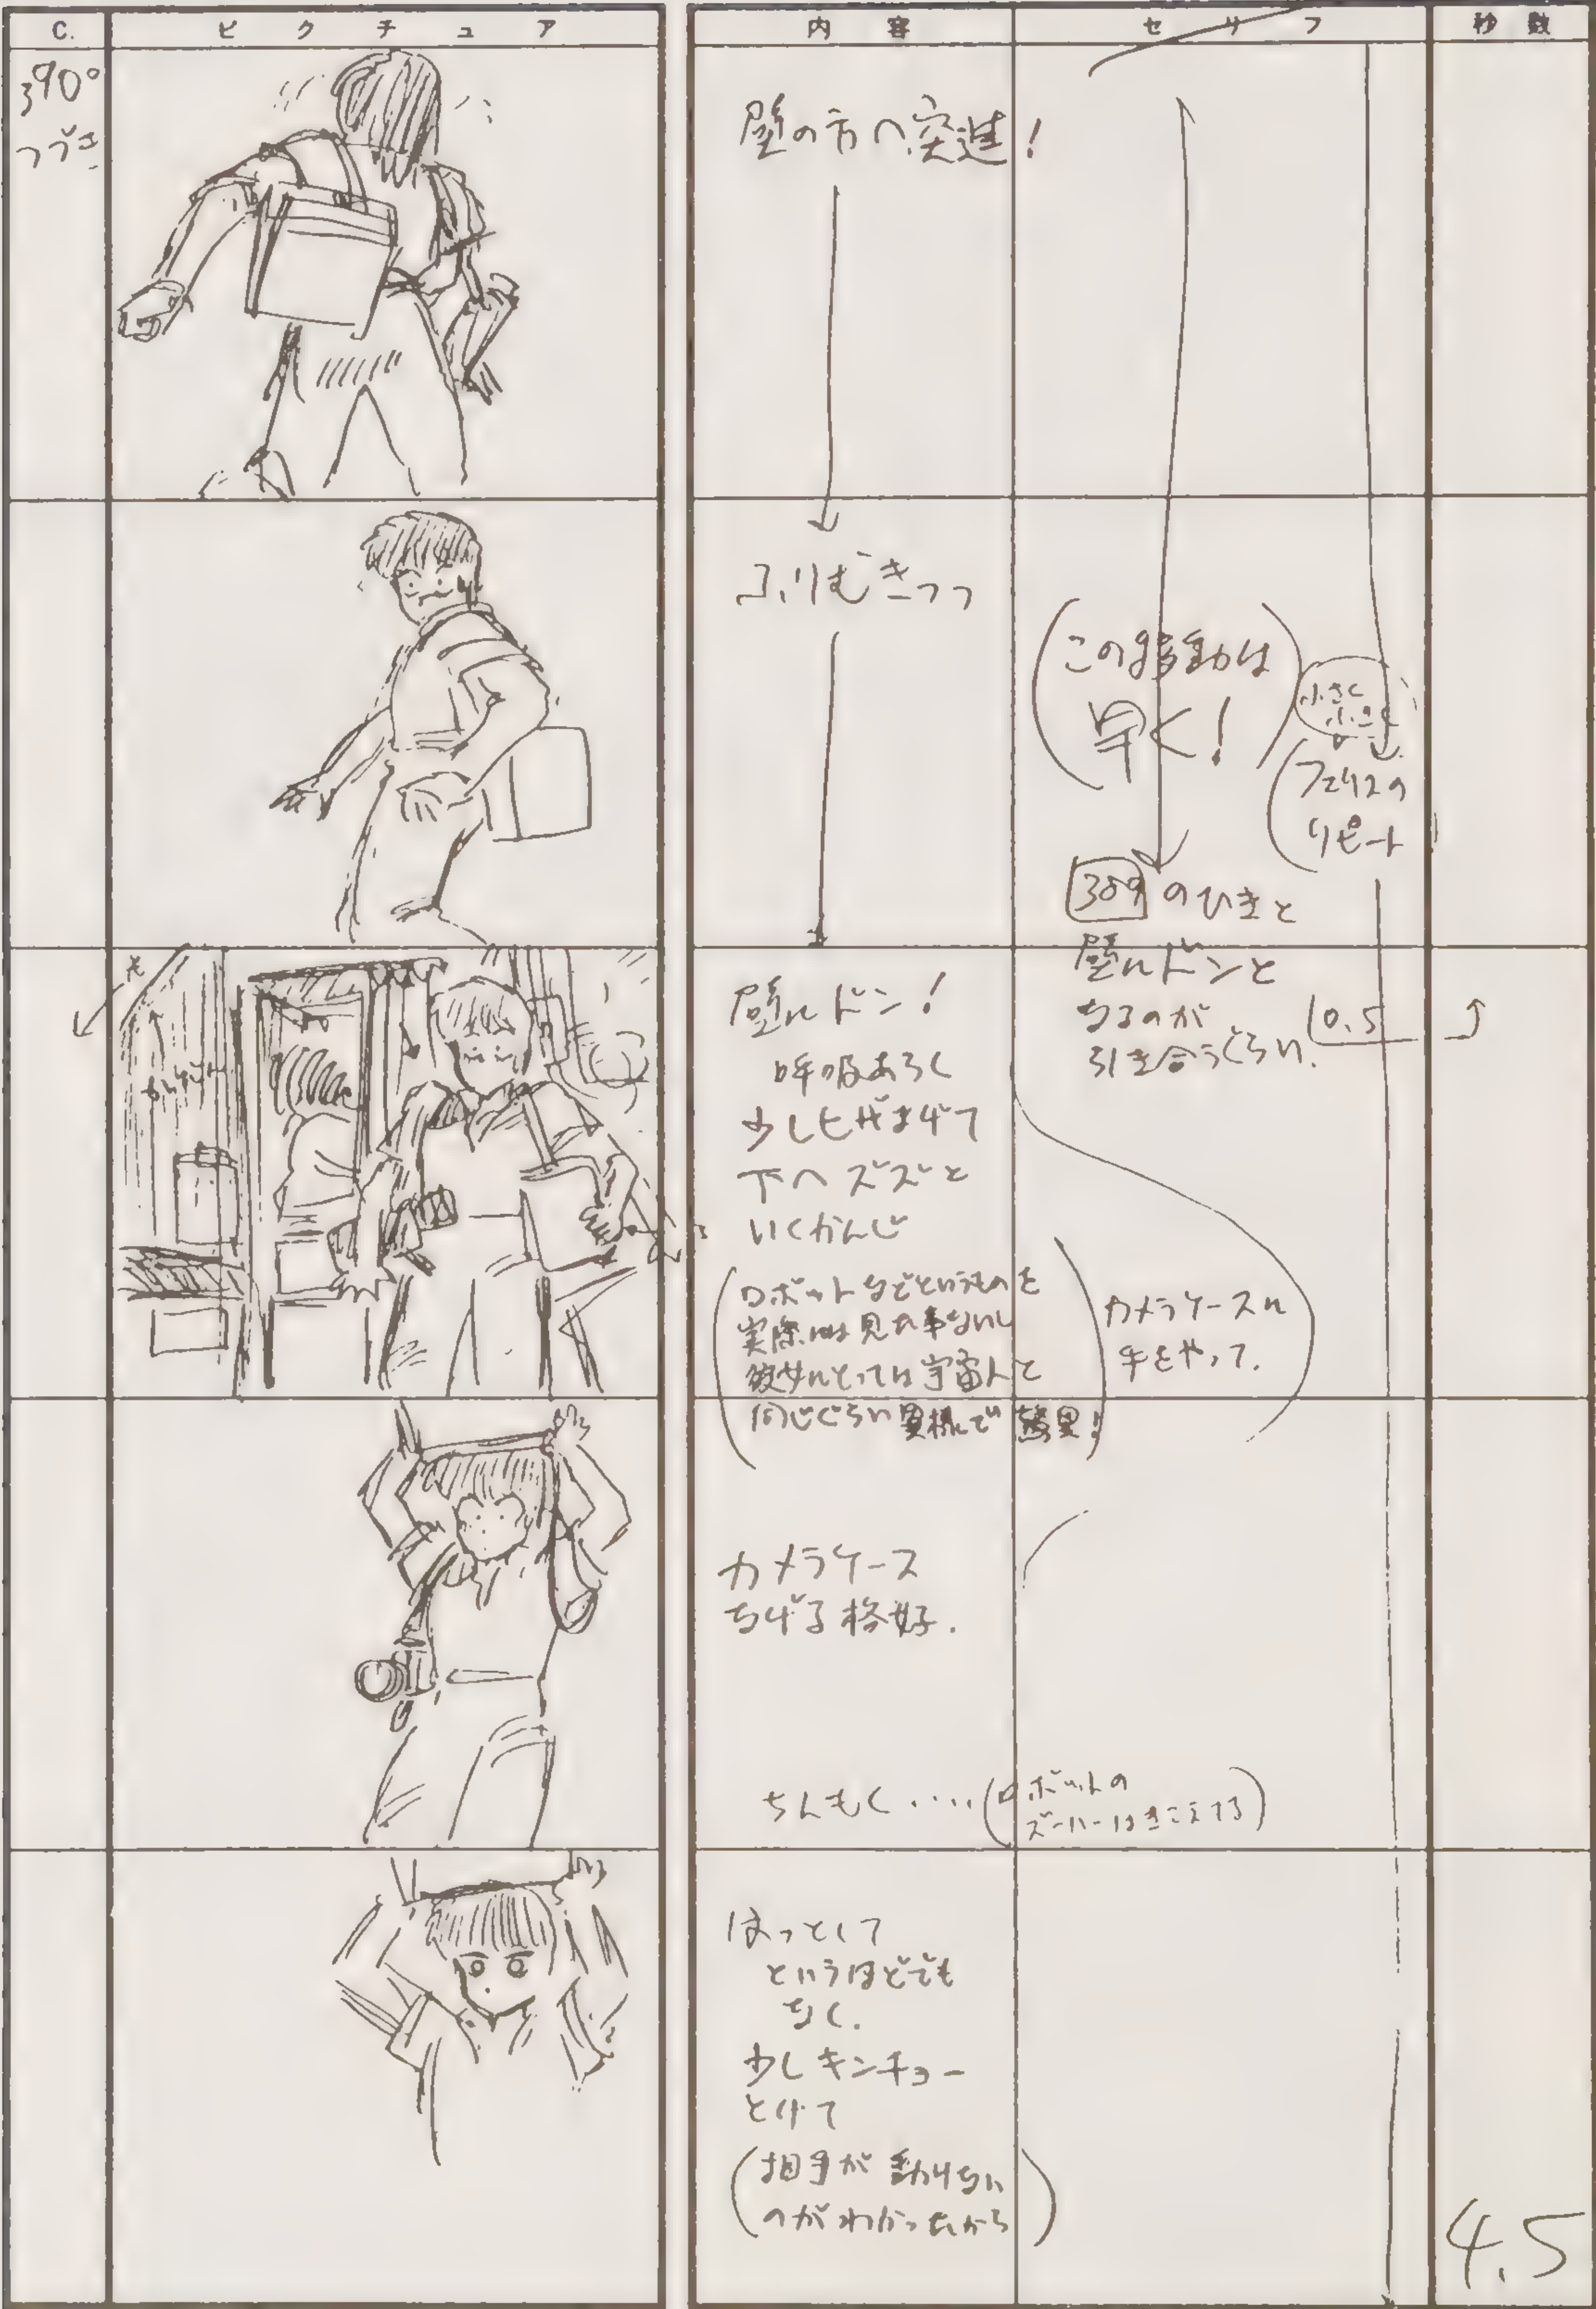 C.
ピクチュア
内容
セリフ
秒数
390°
つづき
壁の方へ突進！
ふりむきつつ
(この移動は
早く！)
小さく
小さく
(フェリスの
リピート
389 のひきと
壁にドンと
なるのが
引き合うぐらい.
0.5
壁にドン！
呼吸あらく
少しヒザまげて
下へズズと
いくかんじ
(ロボットなどというものを
実際には見た事ないし
彼女にとっては宇宙人と
同じぐらい異様で驚異！)
カメラケースに
手をやって.
カメラケース
なげる格好.
ちんもく・・・・(ロボットの
ズーハーはきこえてる)
はっとして
というほどでも
なく.
少しキンチョー
とけて
(相手が動けない
のがわかったから)
4.5